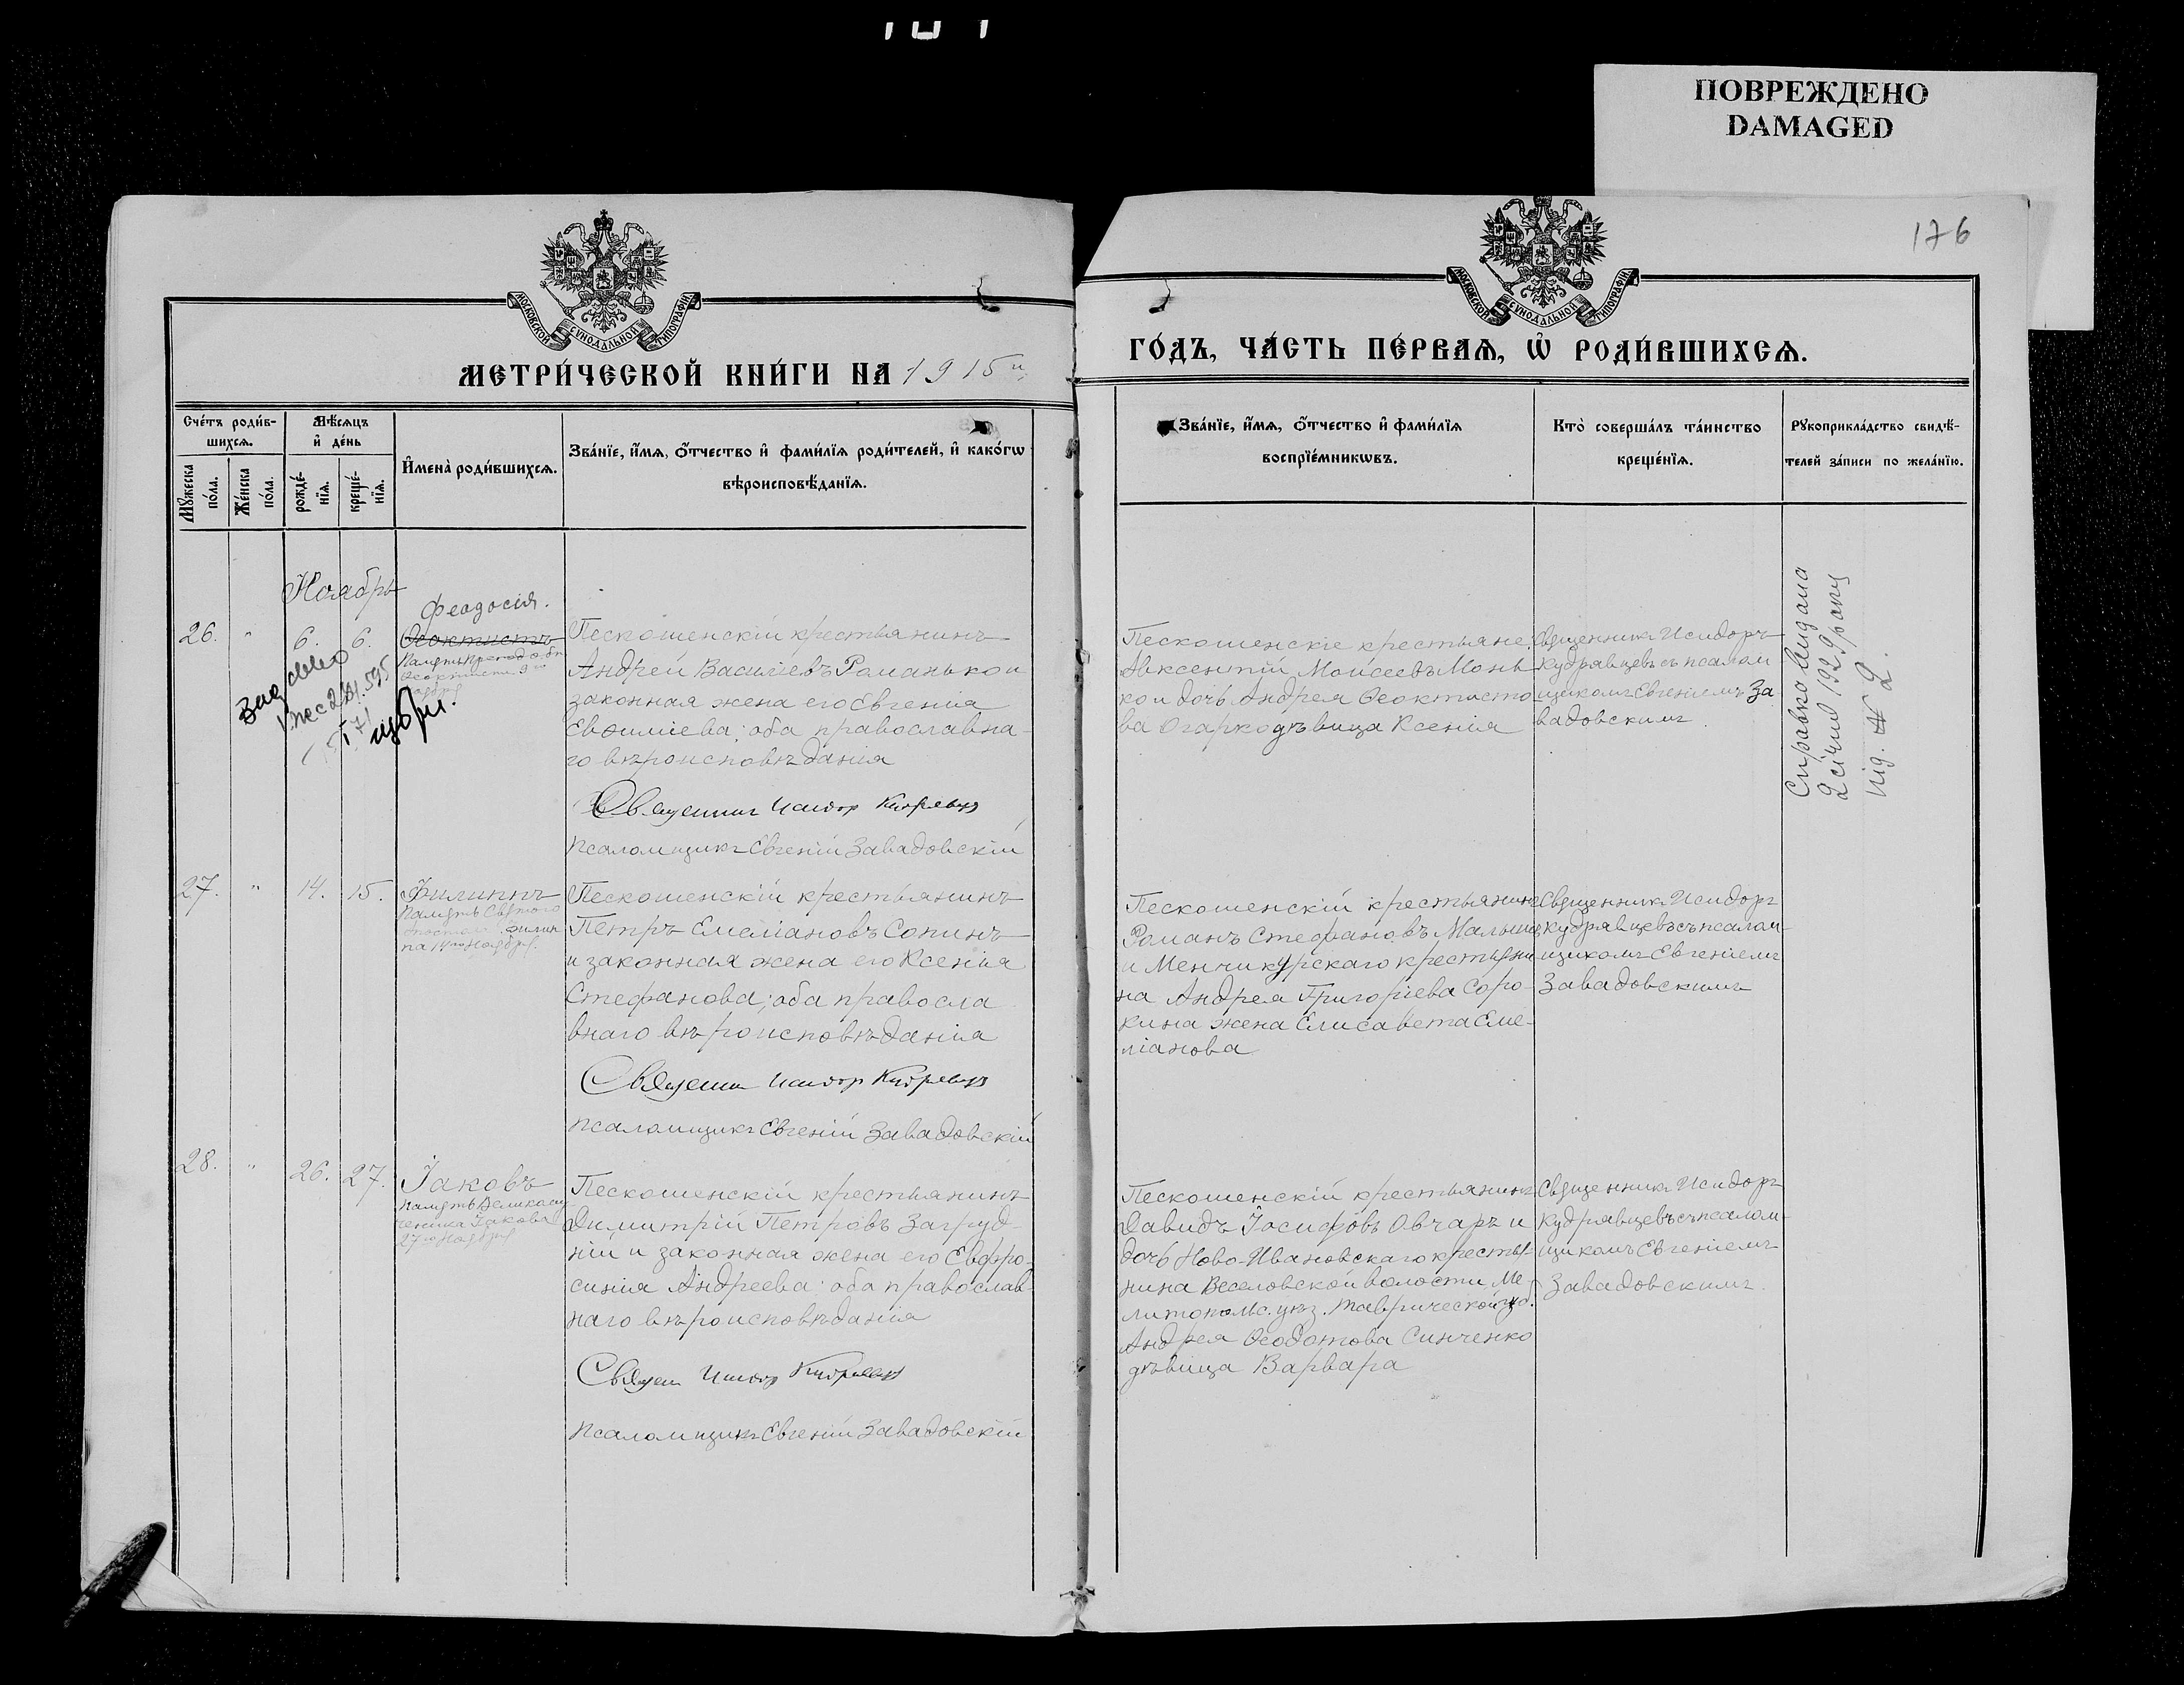 ПОВРЕЖДЕНО
DAMAGED
176
МОСКОВСКОЙ СУНОДАЛЬНОЙ ТИПОГРАФІИ
МОСКОВСКОЙ СУНОДАЛЬНОЙ ТИПОГРАФІИ
МЕТРИ́ЧЕСКОЙ КНИ́ГИ НА 1915 й
ГО́ДЪ, ЧА́СТЬ ПЕ́РВАѦ, Ѡ҆ РОДИ́ВШИХСѦ.
Сче́тъ роди́в-
шихсѧ.
Мꙋжеска по́ла.
Же́нска по́ла.
Мѣ́сѧцъ
и҆ де́нь
рожде́-
нїѧ.
креще́-
нїѧ.
И҆мена̀ роди́вшихсѧ.
Зва́нїе, и҆́мѧ, ѻ҆́тчество и҆ фами́лїѧ роди́телей, и҆ како́гѡ
вѣроисповѣ́данїѧ.
Зва́нїе, и҆́мѧ, ѻ҆́тчество и҆ фами́лїѧ
воспрїе́мникѡвъ.
Кто̀ соверша́лъ та́инство
креще́нїѧ.
Рꙋкоприкла́дство свидѣ́-
телей за́писи по жела́нїю.
Ноябрь
Феодосія.
26. " 6. 6. Ѳеоктистъ
Память Преподобн
Пескошенскій крестьянинъ
Андрей Василіевъ Романько и
законная жена его Евгенія
Евѳиміева; оба православна-
го вѣроисповѣданія
Священник Исидор Кудрявцев
Псаломщикъ Евгеній Завадовскій
Пескошенскіе крестьяне;
Авксентій Моисеевъ Монь-
ко и дочь Андрея Ѳеоктисто-
ва Огарко дѣвица Ксенія
Священникъ Исидоръ
Кудрявцевъ съ псалом
щикомъ Евгеніемъ За-
вадовскимъ
Справка видана
2 січня 1929 року
від. № 2.
27. " 14. 15. Филиппъ
Память Святого
Апостола Филип
па 14го Ноября.
Пескошенскій крестьянинъ
Петръ Емеліановъ Сопинъ
и законная жена его Ксенія
Стефанова; оба правосла
внаго вѣроисповѣданія
Священник Исидор Кудрявцев
Псаломщикъ Евгеній Завадовскій
Пескошенскій крестьянинъ
Романъ Стефановъ Малышъ
и Менчикурскаго крестьяни
на Андрея Григоріева Соро-
кина жена Елисавета Еме-
ліанова
Священникъ Исидоръ
Кудрявцевъ съ псалом-
щикомъ Евгеніемъ
Завадовскимъ
28. " 26. 27. Іаковъ
Память Великому
ченика Іакова
27го Ноября
Пескошенскій крестьянинъ
Димитрій Петровъ Загруд-
ній и законная жена его Евфро-
синія Андреева; оба православ-
наго вѣроисповѣданія
Священ Исидор Кудрявцев
Псаломщикъ Евгеній Завадовскій
Пескошенскій крестьянинъ
Давидъ Іосифовъ Овчаръ и
дочь Ново-Ивановскаго крестья-
нина Веселовской волости Ме-
литопольс. уѣз. Таврической губ.
Андрея Ѳеодотова Синченко
дѣвица Варвара
Священникъ Исидоръ
Кудрявцевъ съ псалом-
щикомъ Евгеніемъ
Завадовскимъ